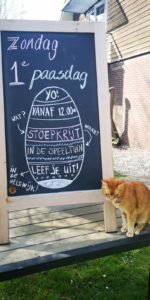 Zondag
1e paasdag
YO!
VANAF 12.00u
WAT?
STOEPKRIJT
WAAR?
IN DE SPEELTUIN
LEEF JE UIT!
IN DE